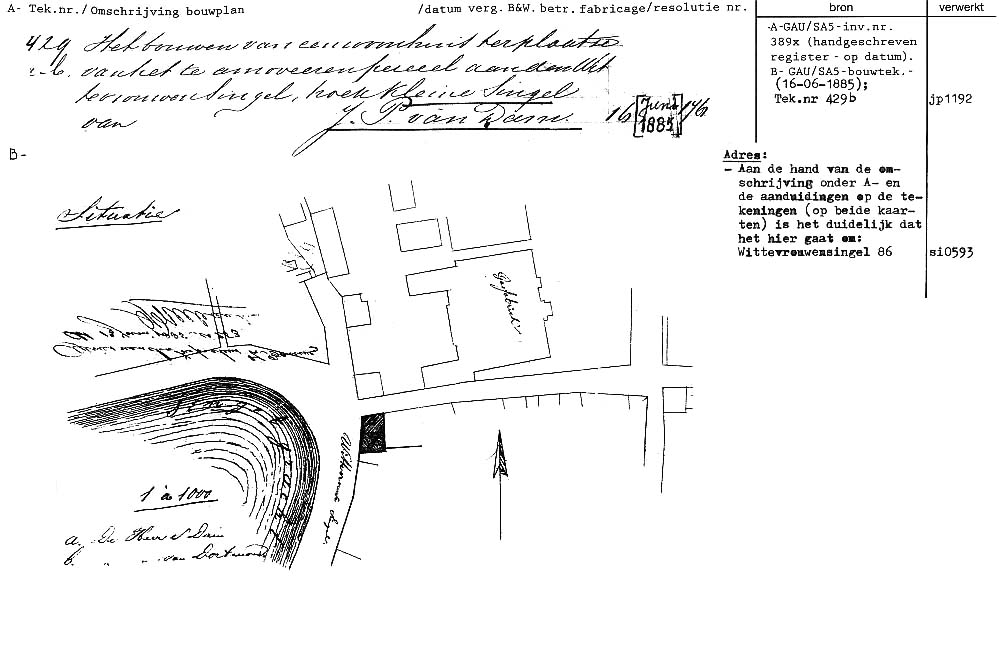 A- Tek.nr./Omschrijving bouwplan /datum verg. B&W. betr. fabricage/resolutie nr.
bron
verwerkt
429 Het bouwen van een woonhuis ter plaatse
b. van het te amoveeren perceel aan den Wit
tevrouwen Singel, hoek Kleine Singel
van J. P. van Dam. 16 [Juni 1885]
A-GAU/SA5-inv.nr.
389x (handgeschreven
register - op datum).
B- GAU/SA5-bouwtek.-
(16-06-1885);
Tek.nr 429b
jp1192
B-
Adres:
- Aan de hand van de om-
schrijving onder A- en
de aanduidingen op de te-
keningen (op beide kaar-
ten) is het duidelijk dat
het hier gaat om:
Wittevrouwensingel 86
si0593
Situatie
Gasfabriek
Singel gracht
1 à 1000
a. De Heer
b. " " van Dortmond